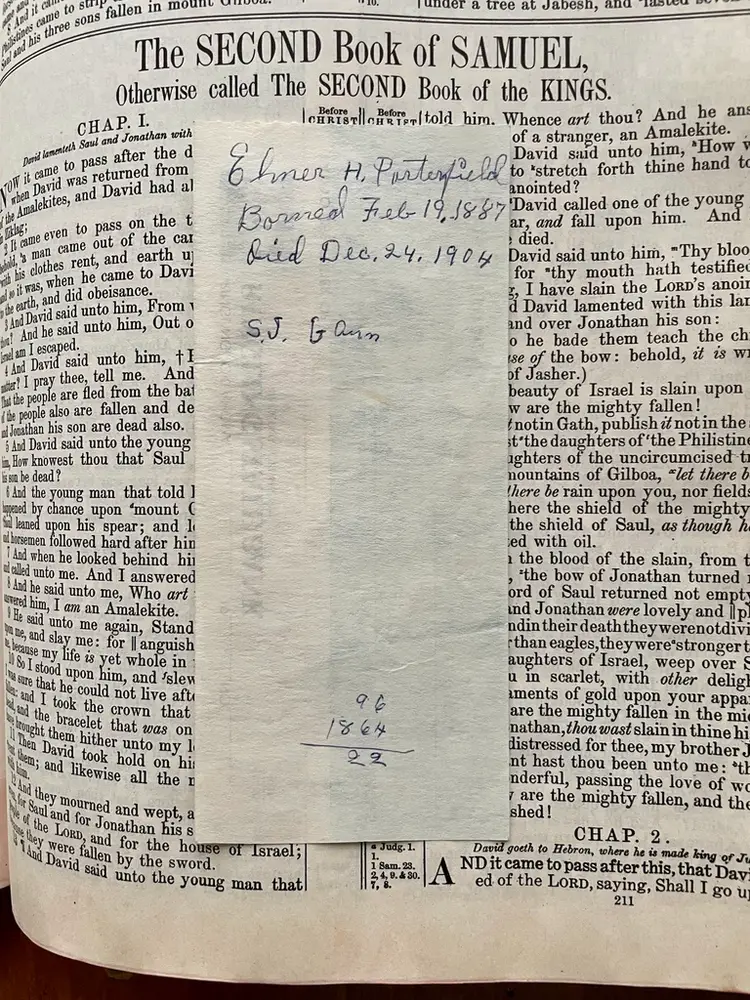 Philistines came to strip
Saul and his three sons fallen in mount Gilboa.
under a tree at Jabesh, and
The SECOND Book of SAMUEL,
Otherwise called The SECOND Book of the KINGS.
CHAP. I.
David lamenteth Saul and Jonathan with
NOW it came to pass after the d
when David was returned from
the Amalekites, and David had a
Ziklag;
2 It came even to pass on the t
behold, a man came out of the ca
with his clothes rent, and earth u
and so it was, when he came to Davi
to the earth, and did obeisance.
3 And David said unto him, From
thou? And he said unto him, Out o
Israel am I escaped.
4 And David said unto him, † 
matter? I pray thee, tell me. And
That the people are fled from the bat
of the people also are fallen and de
and Jonathan his son are dead also.
5 And David said unto the young
him, How knowest thou that Saul
his son be dead?
6 And the young man that told
happened by chance upon mount
Saul leaned upon his spear; and l
and horsemen followed hard after him
7 And when he looked behind hi
and called unto me. And I answered
8 And he said unto me, Who art
answered him, I am an Amalekite.
9 He said unto me again, Stand
upon me, and slay me: for || anguish
me, because my life is yet whole in
10 So I stood upon him, and slew
was sure that he could not live afte
fallen: and I took the crown that
head, and the bracelet that was on
brought them hither unto my l
11 Then David took hold on hi
them; and likewise all the
him.
12 And they mourned and wept, a
for Saul and for Jonathan his s
of the LORD, and for the house of Israel;
they were fallen by the sword.
And David said unto the young man that
Before CHRIST
Before CHRIST
Elmer H. Porterfield
Borned Feb 19, 1887
Died Dec. 24. 1904
S.J. Gann
96
1864
22
a Judg. 1.
1.
1 Sam. 23.
2, 4, 9. & 30.
7, 8.
told him, Whence art thou? And he ans
of a stranger, an Amalekite.
David said unto him, How
to stretch forth thine hand to
anointed?
David called one of the young
ar, and fall upon him. And
died.
David said unto him, Thy bloo
for thy mouth hath testifie
g, I have slain the LORD's anoin
d David lamented with this lam
and over Jonathan his son:
o he bade them teach the ch
se of the bow: behold, it is w
of Jasher.)
beauty of Israel is slain upon
w are the mighty fallen!
not in Gath, publish it not in the
st the daughters of the Philistine
ughters of the uncircumcised t
mountains of Gilboa, let there b
there be rain upon you, nor fields
here the shield of the mighty
the shield of Saul, as though h
ed with oil.
the blood of the slain, from t
the bow of Jonathan turned
ord of Saul returned not empty
and Jonathan were lovely and || pl
nd in their death they were not divi
than eagles, they were stronger t
aughters of Israel, weep over S
u in scarlet, with other deligh
aments of gold upon your appa
are the mighty fallen in the mi
nathan, thou wast slain in thine hi
distressed for thee, my brother J
nt hast thou been unto me: th
nderful, passing the love of wo
are the mighty fallen, and the
shed!
CHAP. 2.
David goeth to Hebron, where he is made king of Ju
AND it came to pass after this, that Davi
ed of the LORD, saying, Shall I go u
211